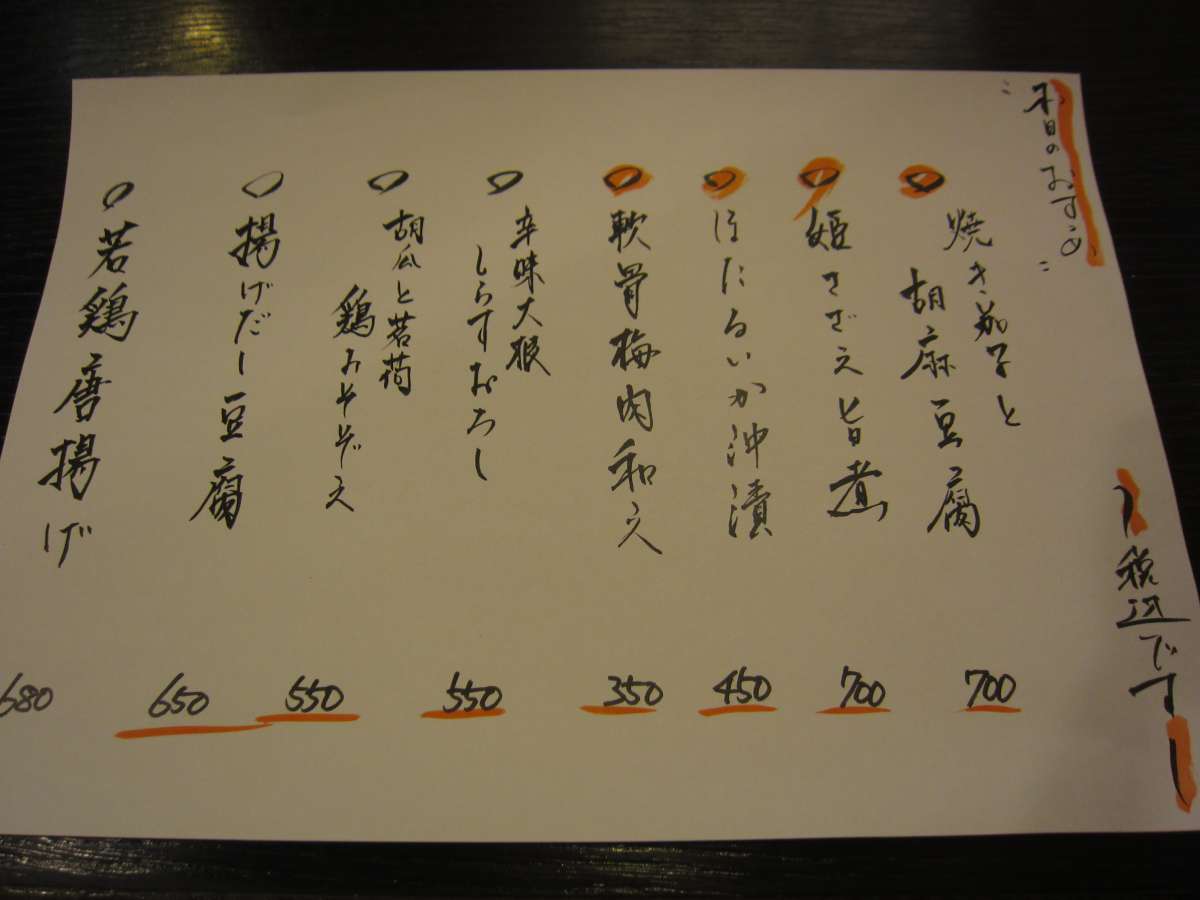 本日のおすすめ
税込です
焼き茄子と
胡麻豆腐
700
姫さざえ旨煮
700
ほたるいか沖漬
450
軟骨梅肉和え
350
辛味大根
しらすおろし
550
胡瓜と茗荷
鶏みそぞえ
550
揚げだし豆腐
650
若鶏唐揚げ
680